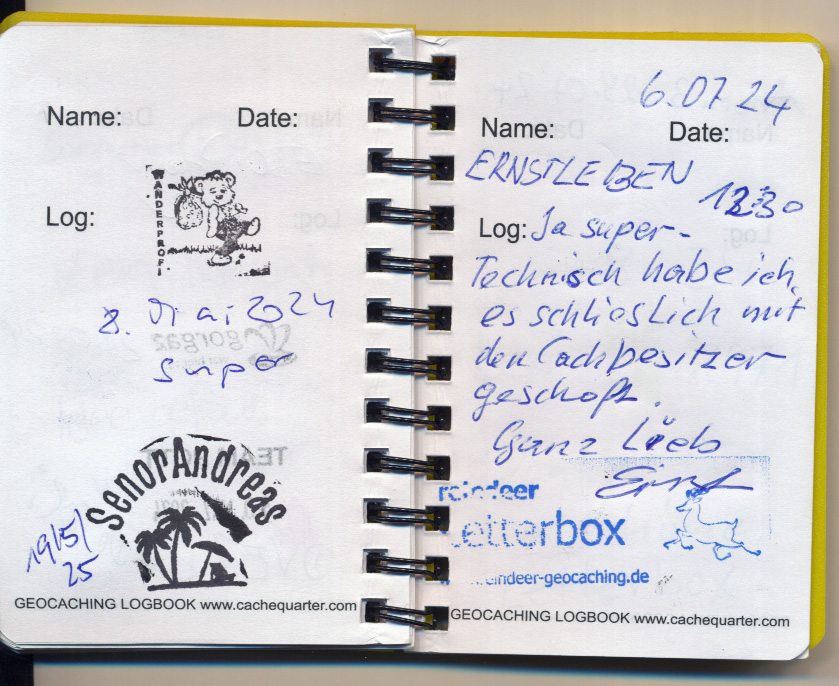 Name: Date:
WANDERPROFI
Log:
8. Mai 2024
super
SenorAndreas
19/5/25
GEOCACHING LOGBOOK www.cachequarter.com
6.07.24
Name: Date:
ERNSTLEBEN
1230
Log: Ja super-
Technisch habe ich
es schlieslich mit
den Cachbesitzer
geschaft.
Ganz Lieb
Ernst
reindeer
Letterbox
reindeer-geocaching.de
GEOCACHING LOGBOOK www.cachequarter.com